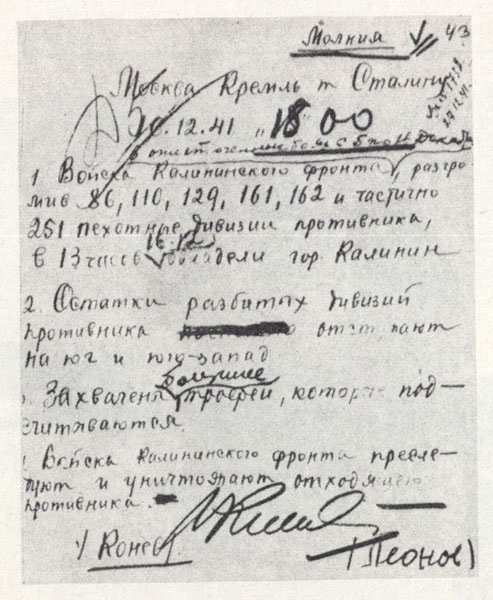 Молния 43
Москва Кремль т Сталину
12.41 „18 00
1. Войска Калининского фронта, разгро
мив 86, 110, 129, 161, 162 и частично
251 пехотные дивизии противника,
16.12
в 13 часов овладели гор. Калинин
2. Остатки разбитых дивизий
противника отступают
на юг и юго-запад
большие
Захвачены трофеи, которые под—
считываются.
Войска Калининского фронта пресле—
дуют и уничтожают отходящего
противника.
Конев
(Леонов)